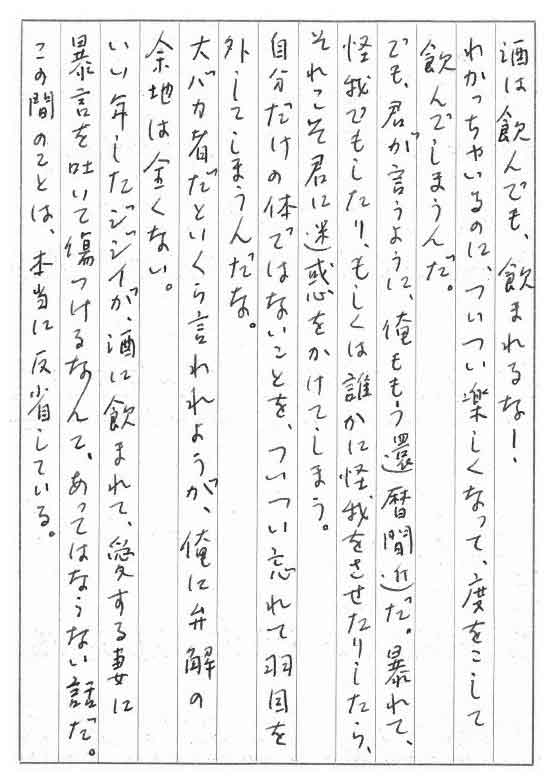 酒は飲んでも、飲まれるな！
わかっちゃいるのに、ついつい楽しくなって、度をこして
飲んでしまうんだ。
でも、君が言うように、俺ももう還暦間近だ。暴れて、
怪我でもしたり、もしくは誰かに怪我をさせたりしたら、
それこそ君に迷惑をかけてしまう。
自分だけの体ではないことを、ついつい忘れて羽目を
外してしまうんだな。
大バカ者だといくら言われようが、俺に弁解の
余地は全くない。
いい年したジジイが、酒に飲まれて、愛する妻に
暴言を吐いて傷つけるなんて、あってはならない話だ。
この間のことは、本当に反省している。